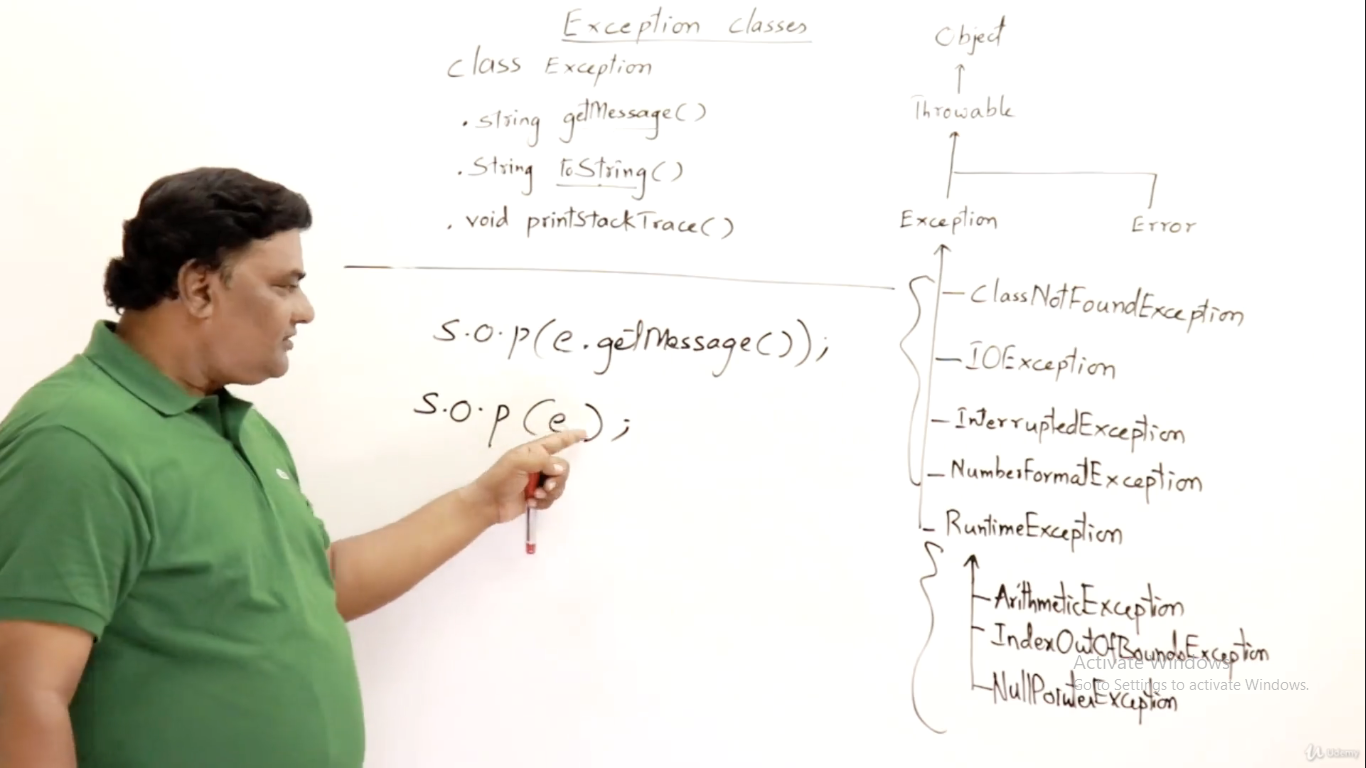 Exception Classes
class Exception
. string getMessage()
. String toString()
. void printStackTrace()
S.O.p(e.getMessage());
S.O.p(e);
Object
Throwable
Exception
Error
ClassNotFoundException
IOException
InterruptedException
NumberFormatException
RuntimeException
ArithmeticException
IndexOutOfBoundsException
NullPointerException
Activate Windows
Go to Settings to activate Windows.
Udemy